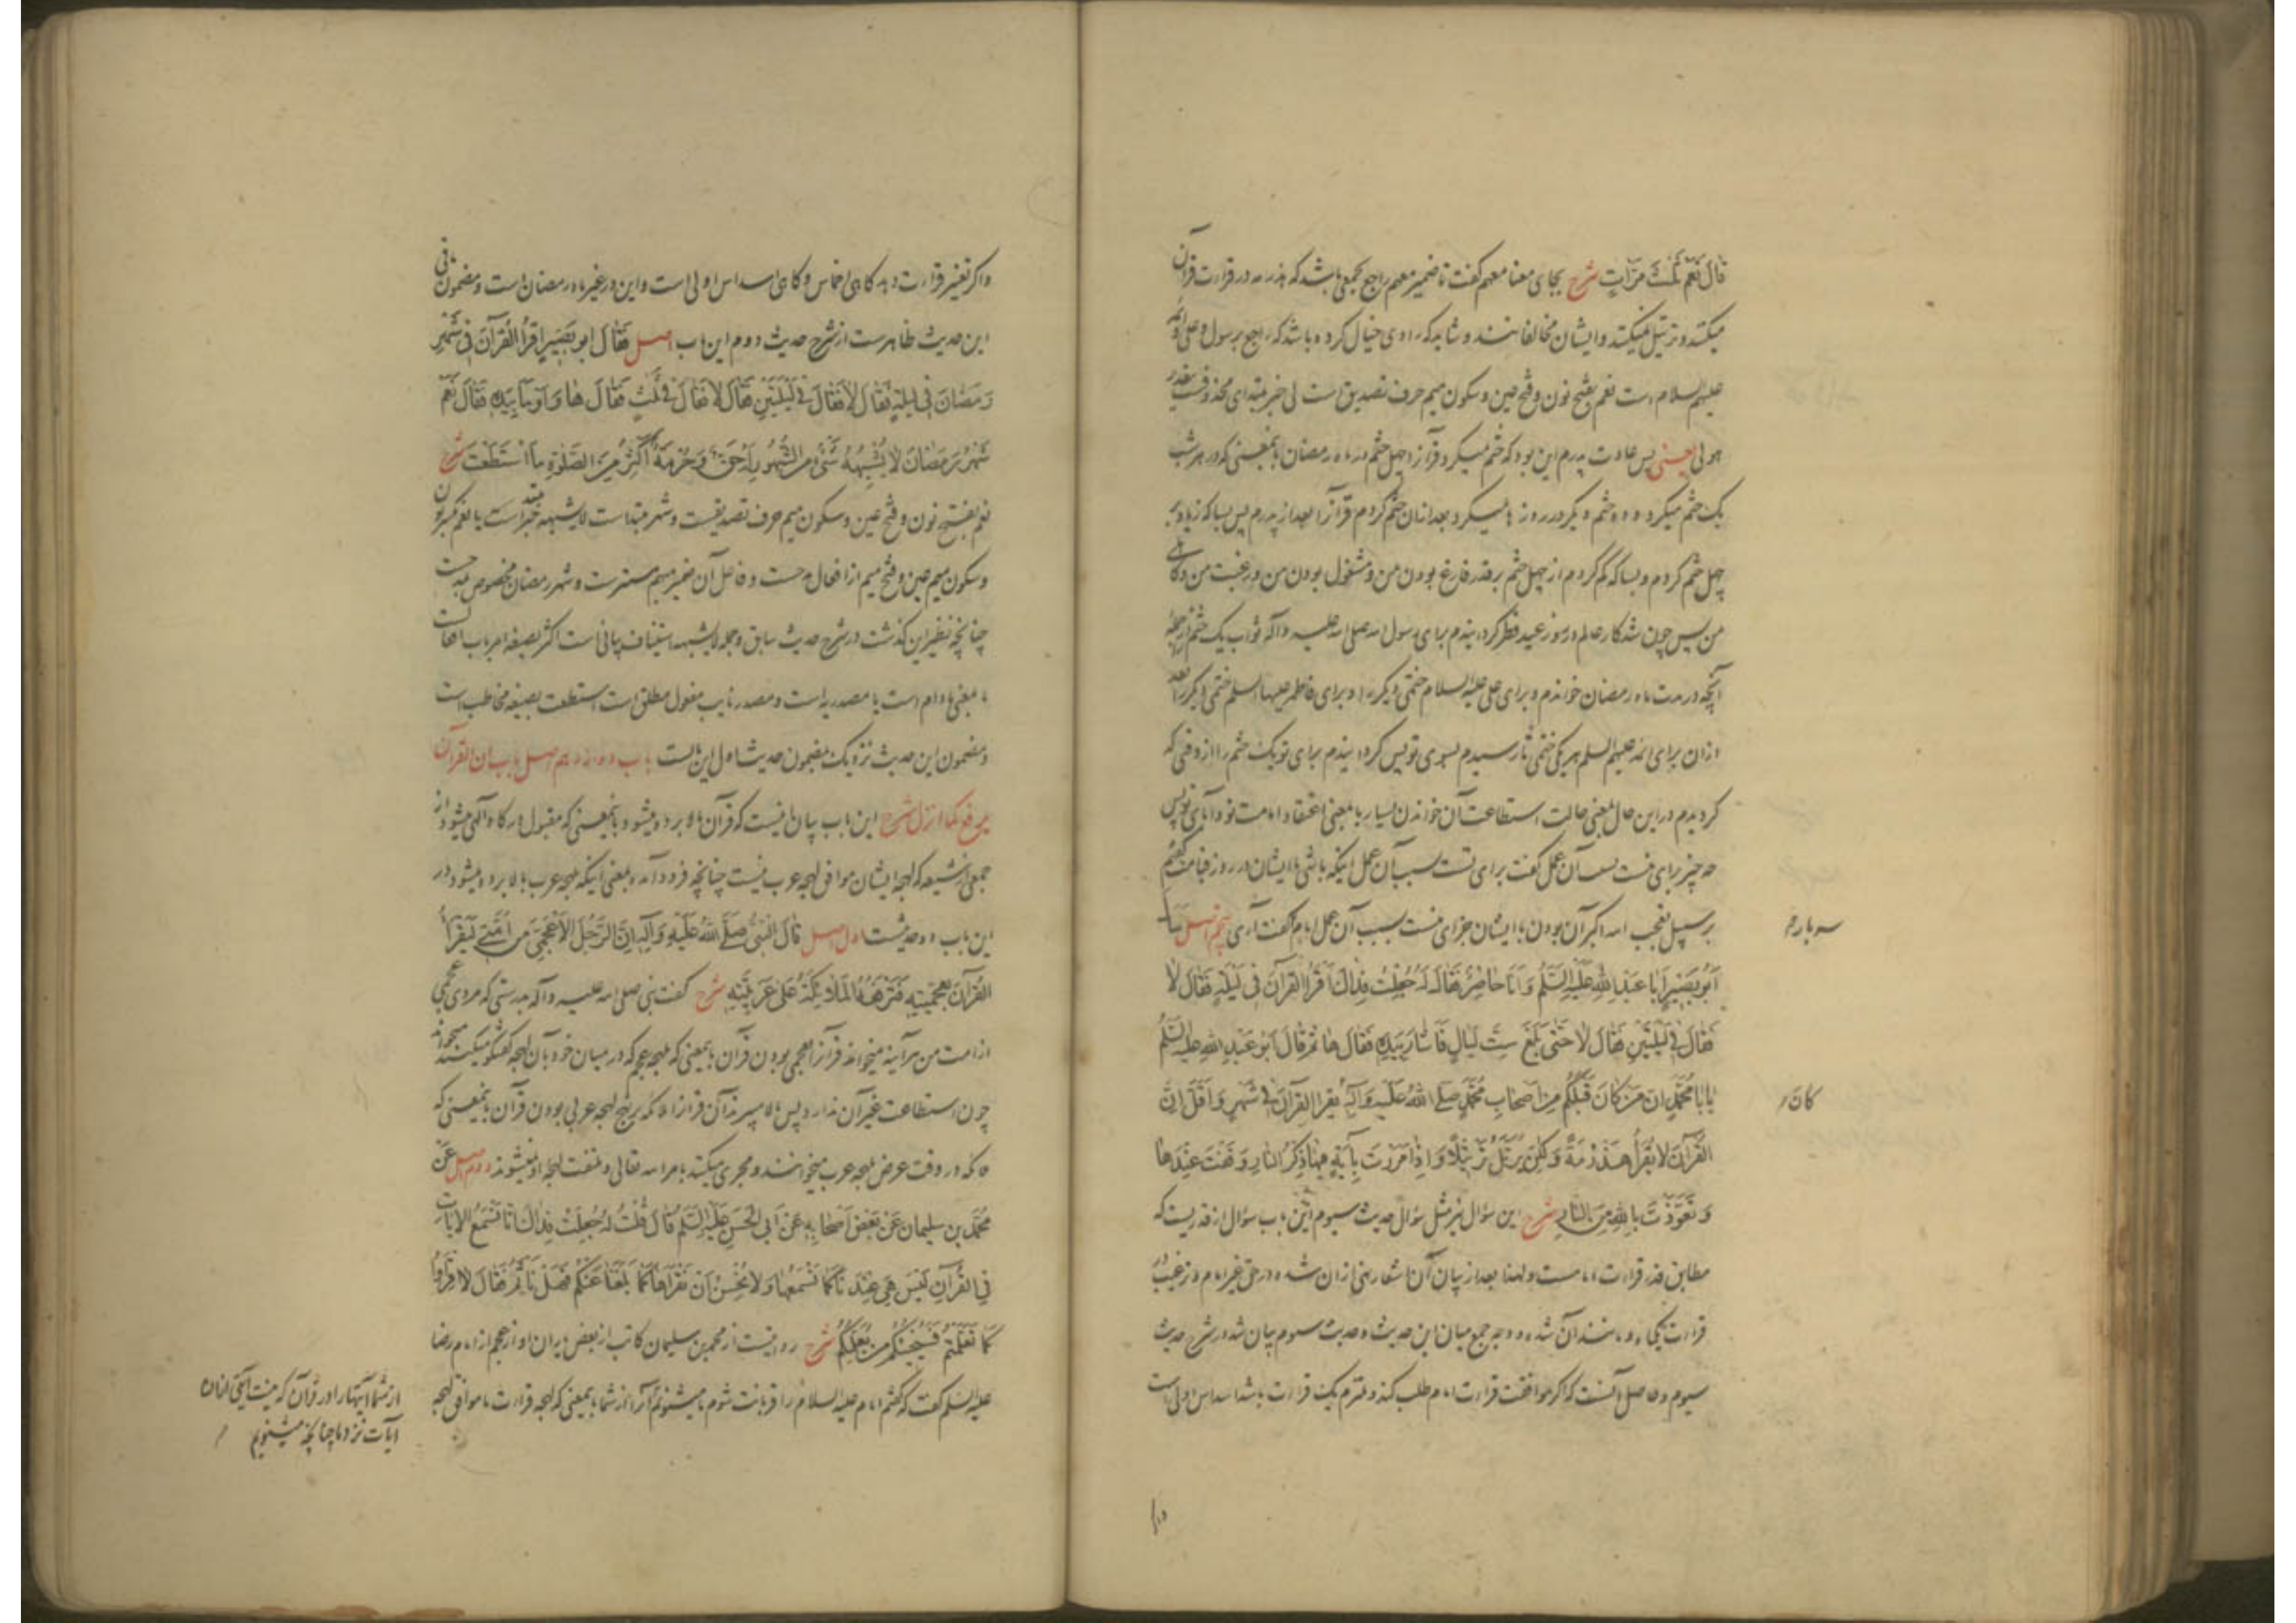 قَالَ نَعَمْ ثَلٰثَ مَرَّاتٍ شرح بجای معنا معهم گفت تا ضمیر معهم راجع بجمعی باشد که هذرمه در قراءت قرآن
میکنند و ترتیل نمیکنند و ایشان مخالفانند و شاید که راوی خیال کرده باشد که راجع برسول و علی و ائمه
علیهم السلام است نعم بفتح نون و فتح عین و سکون میم حرف تصدیق است لی خبر مبتدای محذوفست بتقدیر
هو لی یعنی پس عادت پدرم این بود که ختم میکرد قرآنرا چهل ختم در ماه رمضان بمعنی که در هر شب
یک ختم میکرد و ده ختم دیگر در روزها میکرد بعد ازان ختم کردم قرآنرا بعد از پدرم پس بسا که زیاد بر
چهل ختم کردم و بسا که کم کردم از چهل ختم بر قدر فارغ بودن من و مشغول بودن من و رغبت من و کاهلی
من پس چون شد کار عالم در روز عید فطر گردانیدم برای رسول الله صلی الله علیه وآله ثواب یک ختم از جمله
آنچه در مدت ماه رمضان خواندم و برای علی علیه السلام ختمی دیگر را و برای فاطمه علیها السلم ختمی دیگر را بعد
ازان برای ائمه علیهم السلم هر یکی ختمی تا رسیدم بسوی تو پس گردانیدم برای تو یک ختم را از وقتی که
گردیدم در این حال بمعنی حالت استطاعت آن خواندن بسیار یا بمعنی اعتقاد امامت تو و آبای تو پس
چه چیز برای منست بسبب آن عمل گفت برای تست بسبب آن عمل اینکه باشی با ایشان در روز قیامت گفتم
بر سبیل تعجب الله اکبر آن بودن با ایشان جزای منست بسبب آن عمل امام گفت آری پنجم اصل سَأَلَ
سه بار م
اَبُو بَصِیْرٍ اَبَا عَبْدِ اللهِ عَلَیْهِ السَّلَمُ وَ اَنَا حَاضِرٌ فَقَالَ لَهُ جُعِلْتُ فِدَاكَ اَقْرَأُ الْقُرْآنَ فِی لَیْلَةٍ فَقَالَ لَا
فَقَالَ فِی لَیْلَتَیْنِ فَقَالَ لَا حَتّٰی بَلَغَ سِتَّ لَیَالٍ فَاَشَارَ بِیَدِهِ فَقَالَ هَا ثُمَّ قَالَ اَبُو عَبْدِ اللهِ عَلَیْهِ السَّلَمُ
یَا بَا مُحَمَّدٍ اِنَّ مَنْ كَانَ قَبْلَكُمْ مِنْ اَصْحَابِ مُحَمَّدٍ صَلَّی اللهُ عَلَیْهِ وَآلِهِ یَقْرَأُ الْقُرْآنَ فِی شَهْرٍ وَ اَقَلَّ اِنَّ
كان م
الْقُرْآنَ لَا یُقْرَأُ هَذْرَمَةً وَ لٰكِنْ یُرَتَّلُ تَرْتِیْلًا وَ اِذَا مَرَرْتَ بِآیَةٍ فِیْهَا ذِكْرُ النَّارِ وَقَفْتَ عِنْدَهَا
وَ تَعَوَّذْتَ بِاللهِ مِنَ النَّارِ شرح این سؤال نیز مثل سؤال حدیث سیوم این باب سؤال از قدریست که
مطابق قدر قراءت امامست و لهذا بعد از بیان آن اشعار بنهی ازان شده در حق غیر امام و ترغیب در
قراءت یکماه و مانند آن شده و وجه جمع میان این حدیث و حدیث سیوم بیان شد در شرح حدیث
سیوم و حاصل آنست که اگر موافقت قراءت امام طلب کند و ملتزم یک قراءت باشد اسداس اولی است
واگر تغییر قراءت دهد گاهی اخماس و گاهی اسداس اولی است و این در غیر ماه رمضان است و مضمون باقی
این حدیث ظاهرست از شرح حدیث دوم این باب اصل فَقَالَ ابو بَصِیْرٍ اَقْرَأُ الْقُرْآنَ فِی شَهْرِ
رَمَضَانَ فِی لَیْلَةٍ فَقَالَ لَا فَقَالَ فِی لَیْلَتَیْنِ فَقَالَ لَا فَقَالَ فِی ثَلٰثٍ فَقَالَ هَا وَ اَوْمَأَ بِیَدِهِ فَقَالَ نَعَمْ
شَهْرُ رَمَضَانَ لَا یُشْبِهُهُ شَیْءٌ مِنَ الشُّهُورِ لَهُ حَقٌّ وَ حُرْمَةٌ اَكْثِرْ مِنَ الصَّلٰوةِ مَا اسْتَطَعْتَ شرح
نعم بفتح نون و فتح عین و سکون میم حرف تصدیقست و شهر مبتداست لا یشبهه خبر مبتداست یا نعم بکسر نون
و سکون عین و فتح میم از افعال مدحست و فاعل آن ضمیر مبهم مستترست و شهر رمضان مخصوص بمدحست
چنانچه نظیر این گذشت در شرح حدیث سابق و جمله لا یشبهه استیناف بیانی است اکثر بصیغه امر باب افعالست
ما بمعنی مادام است یا مصدریه است و مصدر نایب مفعول مطلق است استطعت بصیغه مخاطب است
و مضمون این حدیث نزدیک بمضمون حدیث اول این بابست باب دوازدهم اصل باب ان القرآن
یرفع کما انزل شرح این باب بیان اینست که قرآن بالا برده میشود بمعنی که مقبول درگاه الهی میشود از
جمعی از شیعه که لهجه ایشان موافق لهجه عرب نیست چنانچه فرود آمده بمعنی اینکه بلهجه عرب بالا برده میشود در
این باب دو حدیثست اول اصل قَالَ النَّبِیُّ صَلَّی اللهُ عَلَیْهِ وَ آلِهِ اِنَّ الرَّجُلَ الْاَعْجَمِیَّ مِنْ اُمَّتِی لَیَقْرَأُ
الْقُرْآنَ بِعَجَمِیَّتِهِ فَتَرْفَعُهُ الْمَلَائِكَةُ عَلٰی عَرَبِیَّتِهِ شرح گفت نبی صلی الله علیه وآله بدرستی که مردی عجمی
از امت من هرآینه میخواند قرآنرا بعجمی بودن قرآن بمعنی که بلهجه عجم که در میان خود بآن لهجه گفتگو میکنند میخواند
چون استطاعت غیر آن ندارد پس بالا میبرند آن قرآنرا ملائکه بر نهج لهجه عربی بودن قرآن بمعنی که
ملائکه در وقت عرض بلهجه عرب میخوانند و مجری میکنند بامر الله تعالی و ملتفت لهجه او نمیشوند دوم اصل عَنْ
مُحَمَّدِ بن سلیمان عَنْ بَعْضِ اَصْحَابِهِ عَنْ اَبِی الْحَسَنِ عَلَیْهِ السَّلَمُ قَالَ قُلْتُ لَهُ جُعِلْتُ فِدَاكَ اِنَّا نَسْمَعُ الْآیَاتِ
فِی الْقُرْآنِ لَیْسَ هِیَ عِنْدَنَا كَمَا نَسْمَعُهَا وَ لَا نُحْسِنُ اَنْ نَقْرَأَهَا كَمَا بَلَغَنَا عَنْكُمْ فَهَلْ نَأْثَمُ فَقَالَ لَا اقْرَؤُا
كَمَا تَعَلَّمْتُمْ فَسَیَجِیْئُكُمْ مَنْ یُعَلِّمُكُمْ شرح روایتست از محمد بن سلیمان کاتب از بعض یاران او از عجم از امام رضا
علیه السلم گفت که گفتم امام علیه السلام را قربانت شوم ما میشنویم آنرا از شما بمعنی که لهجه قراءت ما موافق لهجه
از شما آیتها را در قرآن که نیست آیتی ازان
آیات نزد ما چنانچه میشنویم م